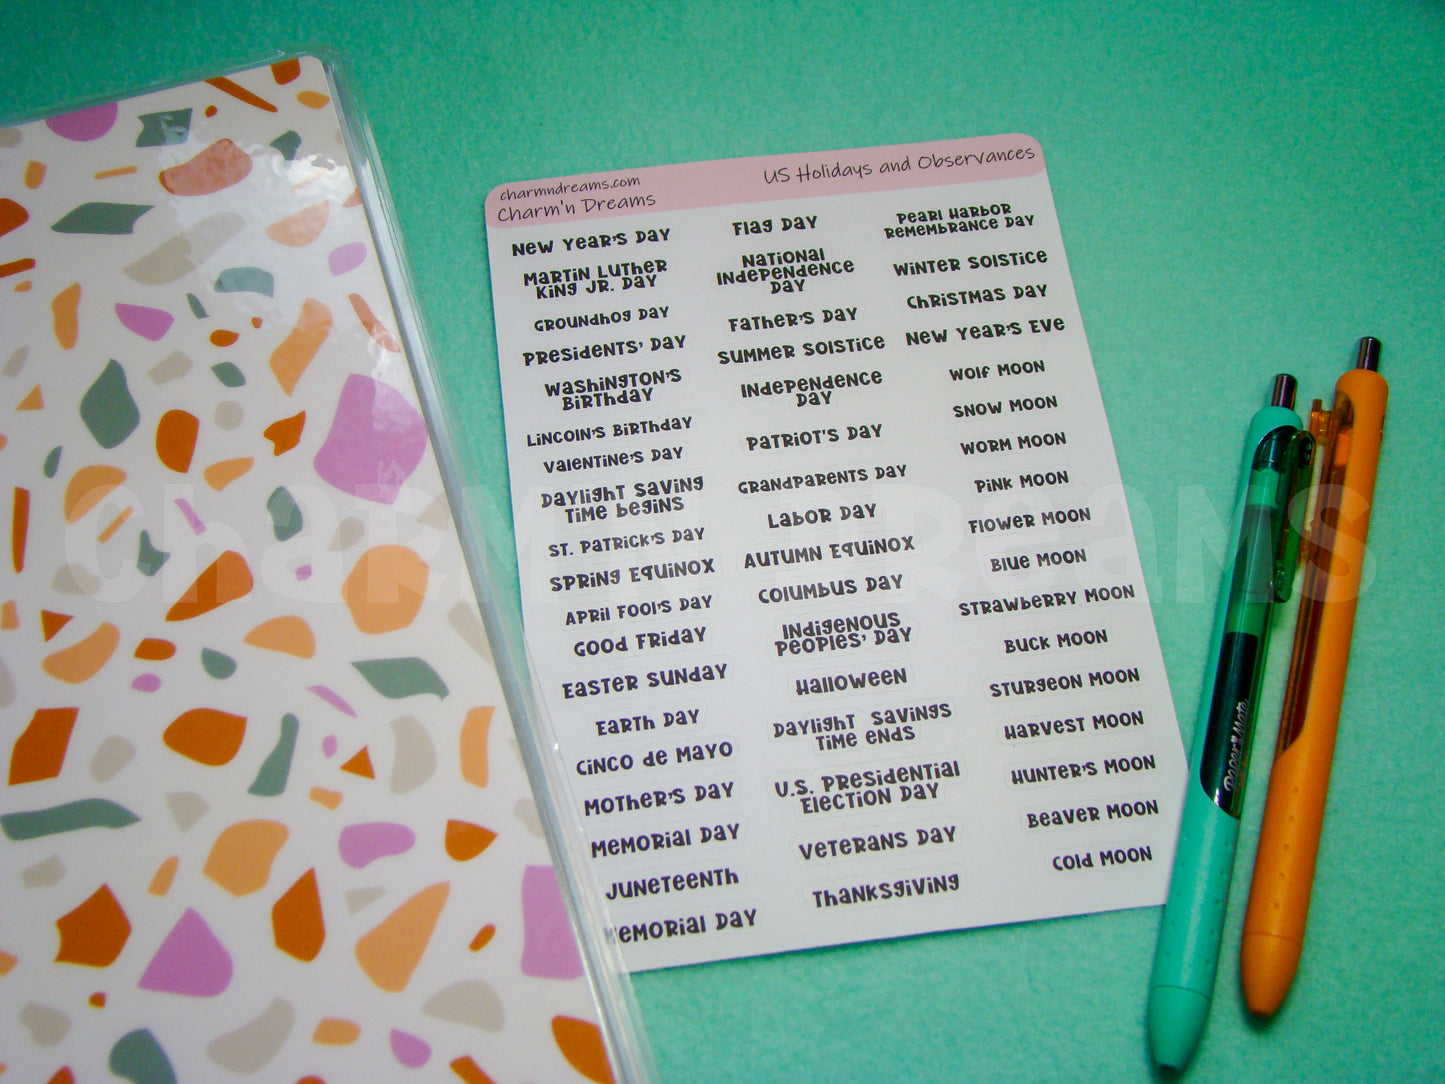 charmndreams.com
Charm'n Dreams
US Holidays and Observances
New Year's Day
Martin Luther
King Jr. Day
Groundhog Day
Presidents' Day
Washington's
Birthday
Lincoln's Birthday
Valentine's Day
Daylight Saving
Time Begins
St. Patrick's Day
Spring Equinox
April Fool's Day
Good Friday
Easter Sunday
Earth Day
Cinco de Mayo
Mother's Day
Memorial Day
Juneteenth
Memorial Day
Flag Day
National
Independence
Day
Father's Day
Summer Solstice
Independence
Day
Patriot's Day
Grandparents Day
Labor Day
Autumn Equinox
Columbus Day
Indigenous
Peoples' Day
Halloween
Daylight Savings
Time Ends
U.S. Presidential
Election Day
Veterans Day
Thanksgiving
Pearl Harbor
Remembrance Day
Winter Solstice
Christmas Day
New Year's Eve
Wolf Moon
Snow Moon
Worm Moon
Pink Moon
Flower Moon
Blue Moon
Strawberry Moon
Buck Moon
Sturgeon Moon
Harvest Moon
Hunter's Moon
Beaver Moon
Cold Moon
Charm'n Dreams
Paper Mate